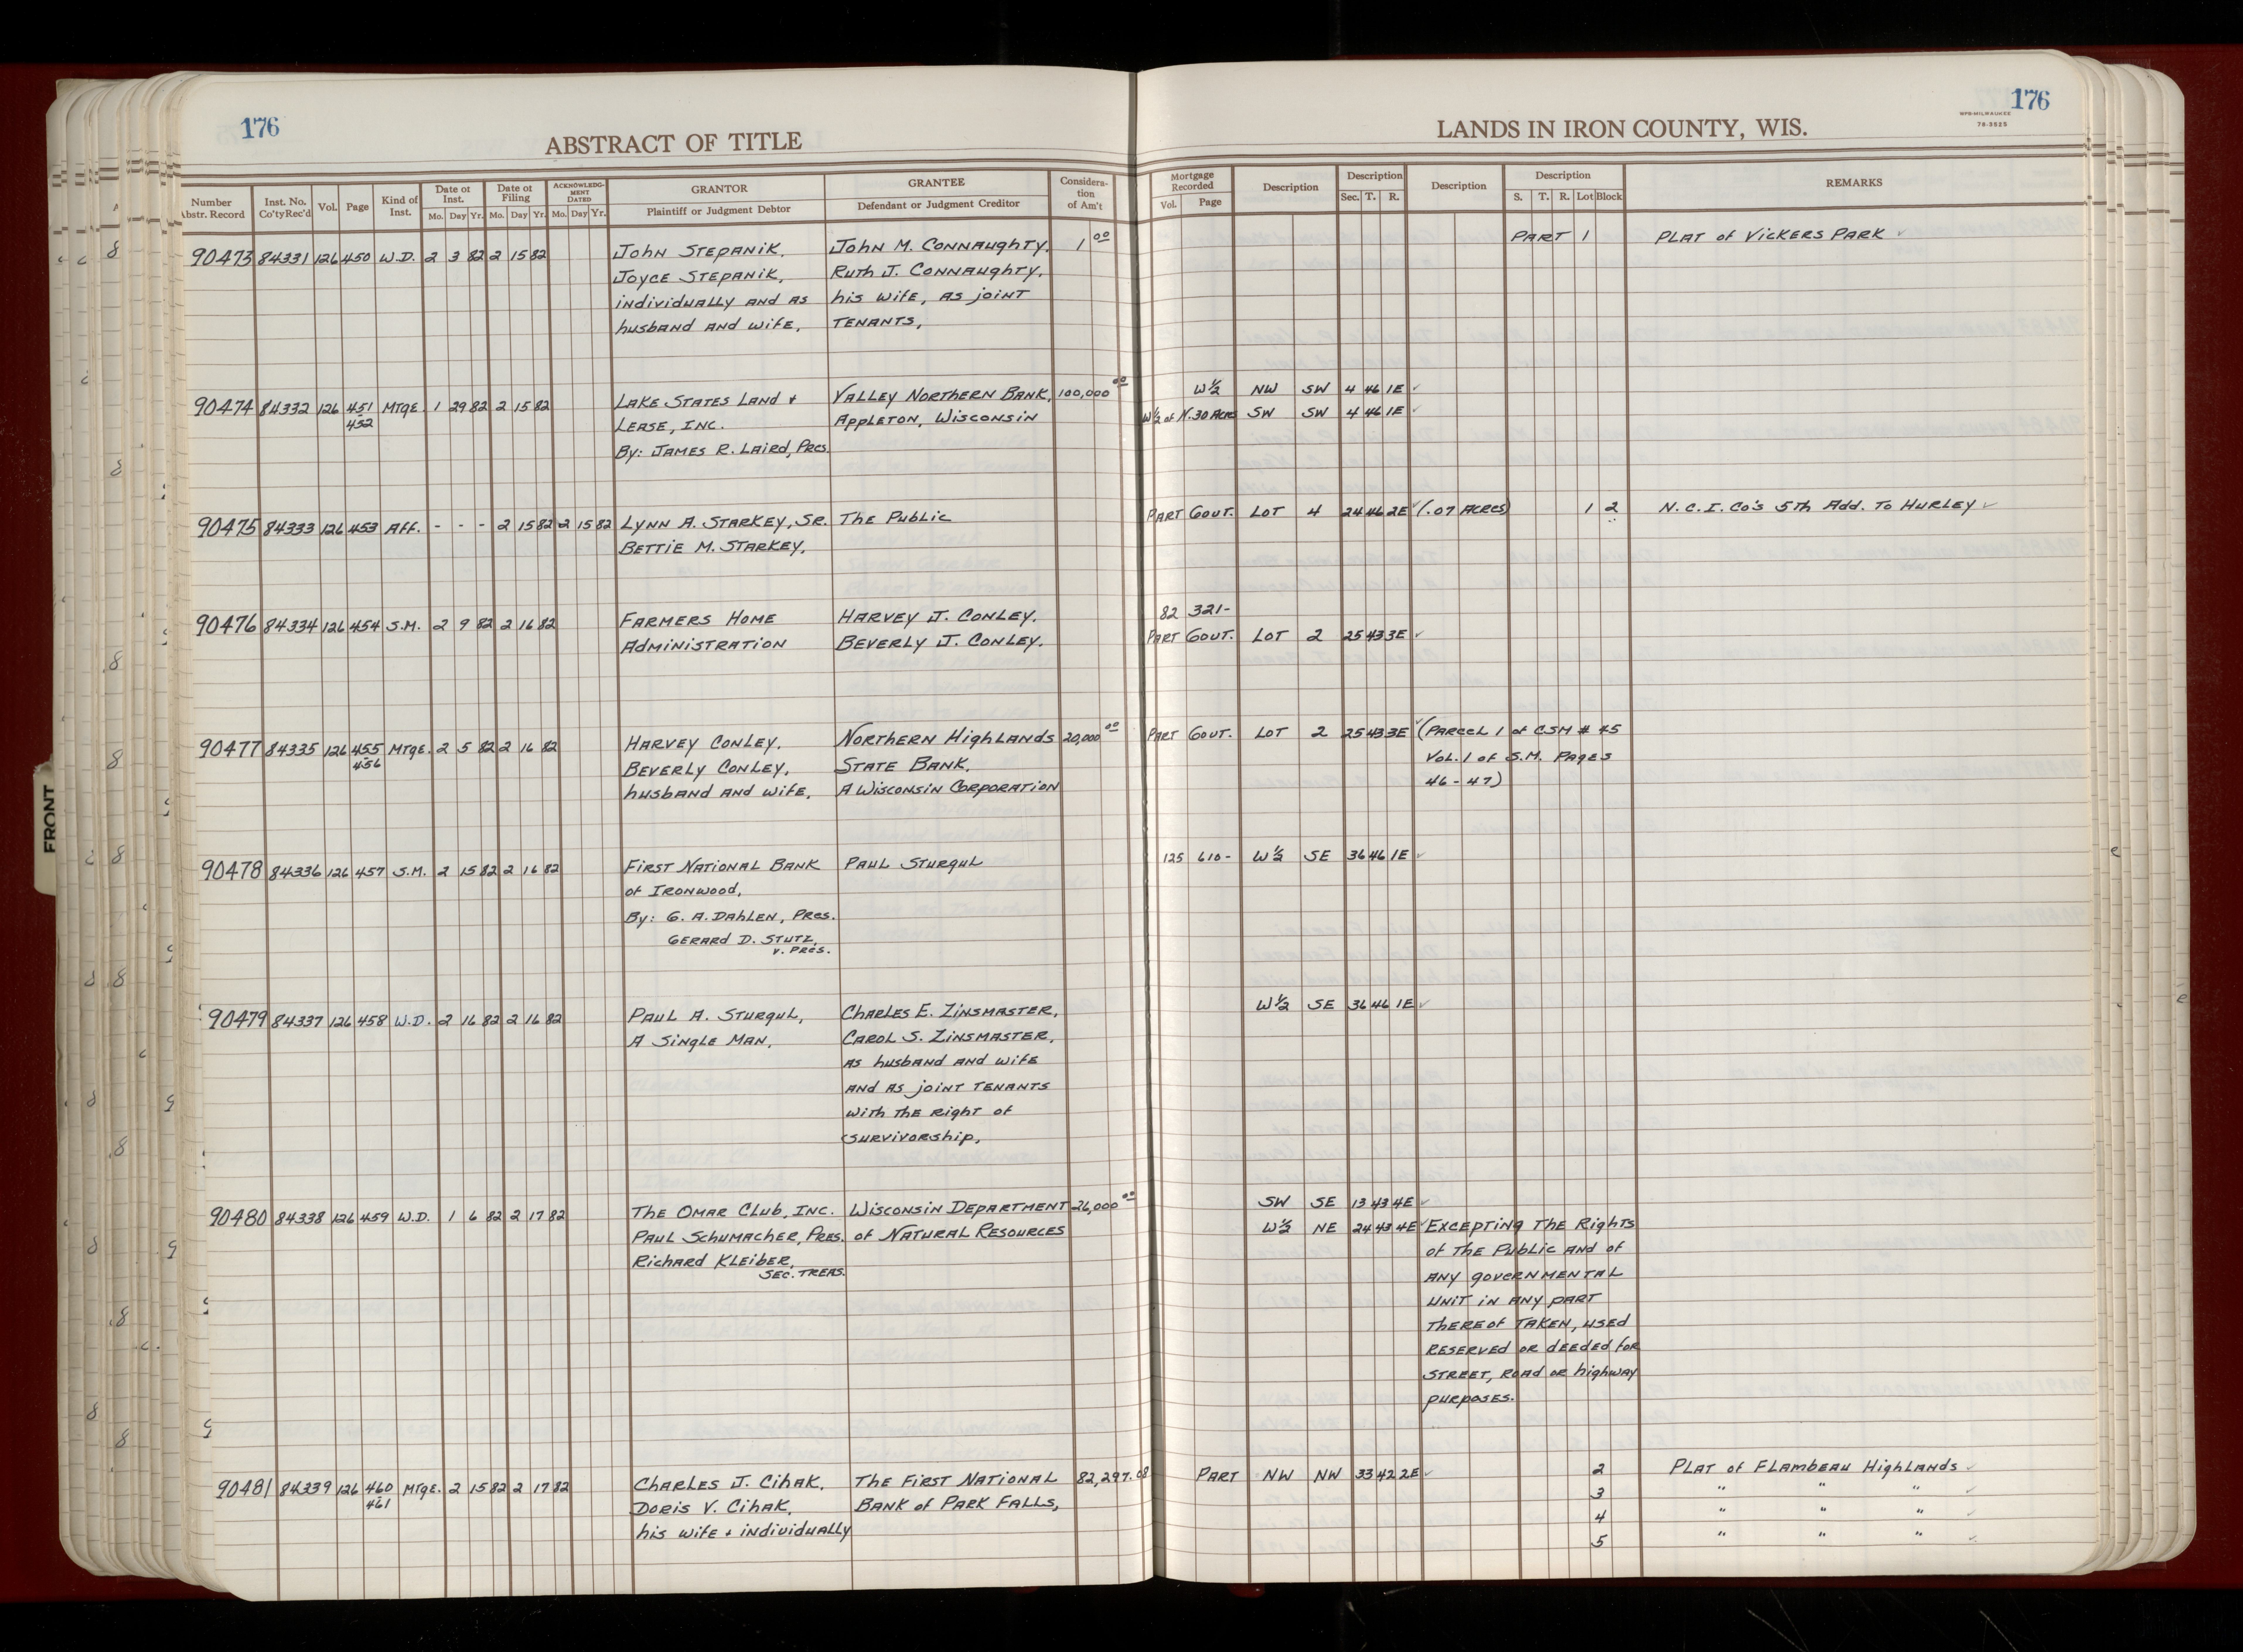 176
ABSTRACT OF TITLE
LANDS IN IRON COUNTY, WIS.
176
WPB-MILWAUKEE
78-3525
Number Abstr. Record | Inst. No. Co'ty Rec'd | Vol. | Page | Kind of Inst. | Date of Inst. Mo. Day Yr. | Date of Filing Mo. Day Yr. | ACKNOWLEDGMENT DATED Mo. Day Yr. | GRANTOR Plaintiff or Judgment Debtor | GRANTEE Defendant or Judgment Creditor | Consideration of Am't | Mortgage Recorded Vol. Page | Description | Description Sec. T. R. | Description | Description S. T. R. Lot Block | REMARKS
90473 84331 126 450 W.D. 2 3 82 2 15 82 John Stepanik, John M. Connaughty, 1 00 PART 1 PLAT of Vickers Park
Joyce Stepanik, Ruth J. Connaughty,
individually and as his wife, as joint
husband and wife, tenants,
90474 84332 126 451-452 Mtge. 1 29 82 2 15 82 Lake States Land + Valley Northern Bank, 100,000 00 W½ NW SW 4 46 1E
Lease, Inc. Appleton, Wisconsin W½ of N.30 Acres SW SW 4 46 1E
By: James R. Laird, Pres.
90475 84333 126 453 Aff. - - - 2 15 82 2 15 82 Lynn A. Starkey, Sr. The Public PART Gout. LOT 4 24 46 2E (.07 Acres) 1 2 N.C.I. Co's 5th Add. To Hurley
Bettie M. Starkey,
90476 84334 126 454 S.M. 2 9 82 2 16 82 Farmers Home Harvey J. Conley, 82 321-
Administration Beverly J. Conley, PART Gout. LOT 2 25 43 3E
90477 84335 126 455-456 Mtge. 2 5 82 2 16 82 Harvey Conley, Northern Highlands 20,000 00 PART Gout. LOT 2 25 43 3E (Parcel 1 of CSM # 45
Beverly Conley, State Bank, Vol. 1 of S.M. Pages
husband and wife, A Wisconsin Corporation 46-47)
90478 84336 126 457 S.M. 2 15 82 2 16 82 First National Bank Paul Sturgul 125 610- W½ SE 36 46 1E
of Ironwood,
By: G. A. Dahlen, Pres.
Gerard D. Stutz,
v. Pres.
90479 84337 126 458 W.D. 2 16 82 2 16 82 Paul A. Sturgul, Charles E. Zinsmaster, W½ SE 36 46 1E
A Single Man, Carol S. Zinsmaster,
as husband and wife
and as joint tenants
with the right of
survivorship,
90480 84338 126 459 W.D. 1 6 82 2 17 82 The Omar Club, Inc. Wisconsin Department 26,000 00 SW SE 13 43 4E
Paul Schumacher, Pres. of Natural Resources W½ NE 24 43 4E Excepting the Rights
Richard Kleiber, of the Public and of
Sec. Treas. any governmental
unit in any part
thereof taken, used
reserved or deeded for
street, road or highway
purposes.
90481 84339 126 460-461 Mtge. 2 15 82 2 17 82 Charles J. Cihak, The First National 82,297.08 PART NW NW 33 42 2E 2 PLAT of Flambeau Highlands
Doris V. Cihak, Bank of Park Falls, 3 " " "
his wife + individually 4 " " "
5 " " "
FRONT